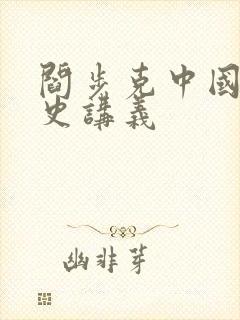 閻步克中國
史講義
幽非芽